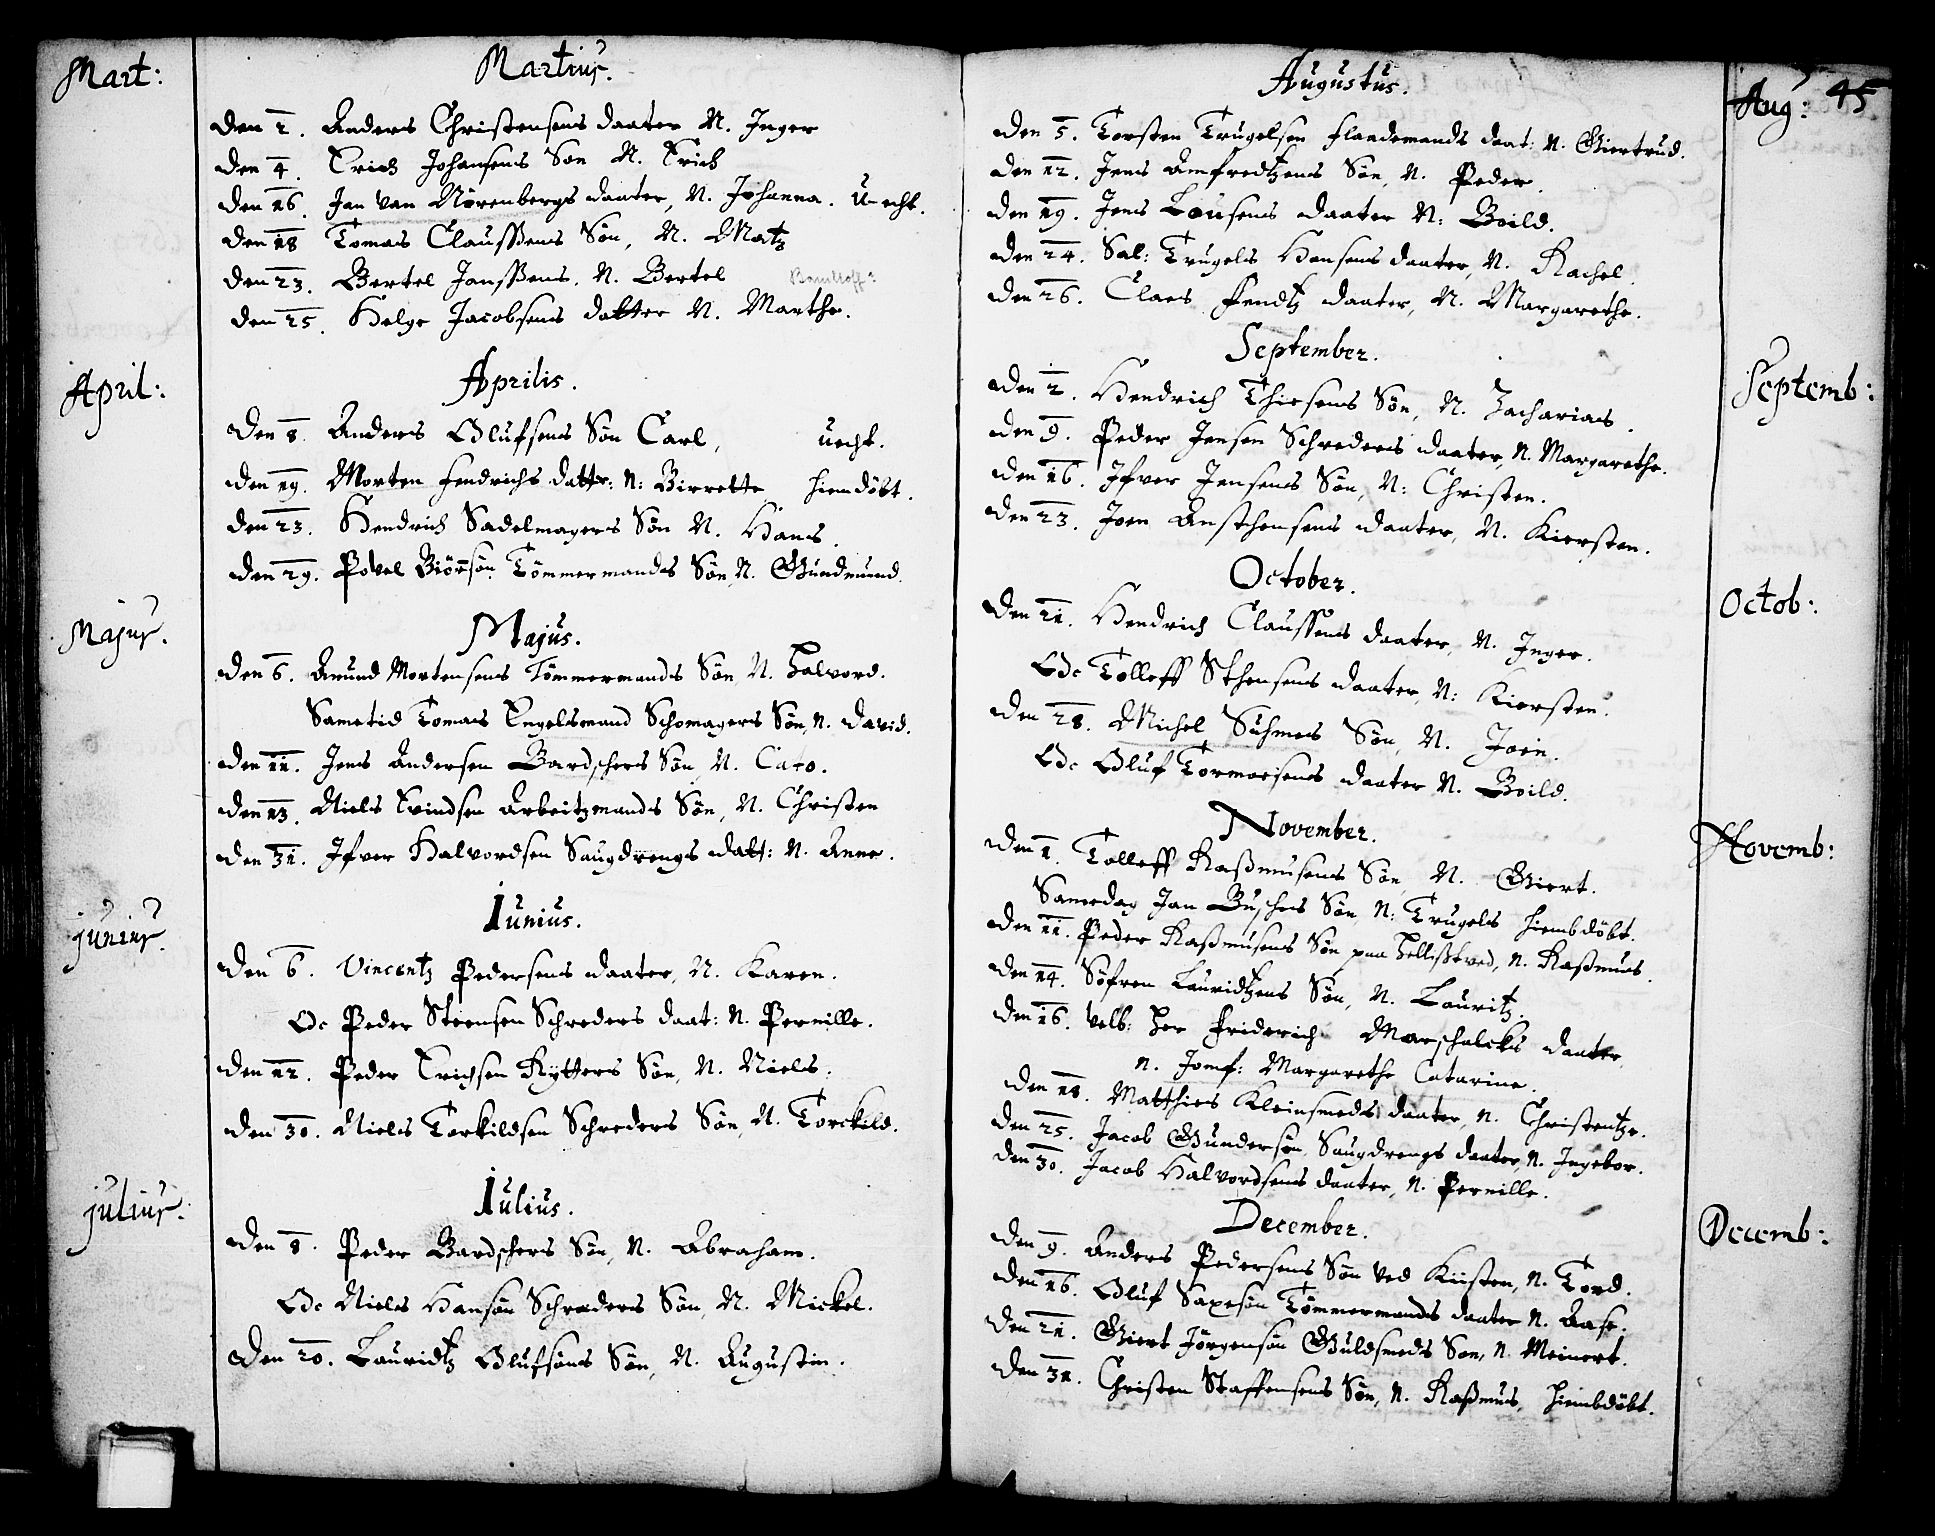 Mart:
Martius.
den 2. Anders Christensens daater N. Inger
den 4. Erich Johansens Søn N. Erich
den 16. Jan van Nørenbergs daater, N. Johanna. Uecht.
den 18 Tomas Claussens Søn, N. Matz
den 23. Bertel Janssens. N. Bertel
den 25. Helge Jacobsens datter N. Marthe.
April:
Aprilis.
den 8. Anders Olufsens Søn Carl, uecht.
den 19. Morten Hendrichs dattr: N: Birrette hiemdøbt.
den 23. Hendrich Sadelmagers Søn N. Hans.
den 29. Povel Biörsøn Tømmermands Søn, N. Gundmund.
Majus.
Majus.
den 6. Amund Mortensens Tømmermands Søn N. Halvord.
Sametid Tomas Engelsmand Schomagers Søn, N. David.
den 11. Jens Andersen Bardschers Søn, N. Cato.
den 13. Niels Svindsen Arbeitzmands Søn, N. Christen
den 31. Ifver Halvordsen Saugdrengs datt: N. Anne.
junius.
Iunius.
den 6. Vincentz Pedersens daater, N. Karen.
Oc Peder Steensen Schreders daat: N. Pernille.
den 12. Peder Erichsen Rytters Søn, N. Niels.
den 30. Niels Torkildsen Schreders Søn, N. Torckild.
julius.
Iulius.
den 8. Peder Bardschers Søn, N. Abraham.
Oc Niels Hansøn Schreders Søn, N. Mickel.
den 20. Lauridtz Olufsøns Søn, N. Augustin.
45
Aug:
Augustus.
den 5. Torsten Trugelsen flaademands daat: N. Giertrud.
den 12. Jens Amfredtzens Søn, N. Peder.
den 19. Jens Lousens daater N: Boild.
den 24. Sal: Trugels Hansens daater, N. Rachel.
den 26. Claes Fendtz daater, N. Margarethe.
Septemb:
September.
den 2. Hendrich Thiesens Søn, N. Zacharias.
den 9. Peder Jensen Schreders daater, N. Margarethe.
den 16. Ifver Jensens Søn, N: Christen.
den 23. Joen Ansthensens daater, N. Kiersten.
Octob:
October.
den 21. Hendrich Claussens daater, N. Inger.
Oc Tolleff Sthensens daater, N: Kiersten.
den 28. Michel Suhmes Søn, N. Join.
Oc Oluf Tormoesens daater N. Boild.
Novemb:
November.
den 1. Tolleff Rassmusens Søn N. Giert.
Samedag Jan Buschs Søn N: Trugels hiembdøbt.
den 11. Peder Rassmusens Søn paa Hellisstved, N. Rassmus.
den 14. Söfren Lauridtzens Søn, N. Lauritz.
den 16. Velb: Her Friderich Marschalcks daater,
N. Jomf: Margarethe Catarina.
den 18. Matthies Kleinsmeds daater, N. Christentze.
den 25. Jacob Gundersøn Saugdrengs daater, N. Ingebor.
den 30. Jacob Halvordsens daater, N. Pernille.
Decemb:
December.
den 9. Anders Pedersens Søn ved Kiisten, N. Tord.
den 16. Oluf Saxesøn Tømmermands daater N. Aase.
den 21. Giert Jörgensøn Guldsmeds Søn, N. Meinert.
den 31. Christen Staffensens Søn, N. Rassmus, hiembdøbt.